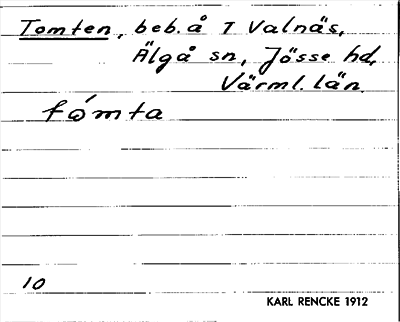 Tomten, beb. å T Valnäs,
Älgå sn, Jösse hd,
Värml. län.
fómta
10
KARL RENCKE 1912